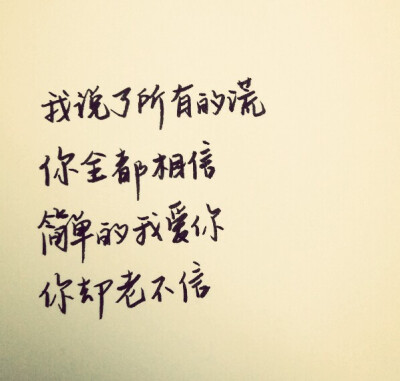 我说了所有的谎
你全都相信
简单的我爱你
你却老不信